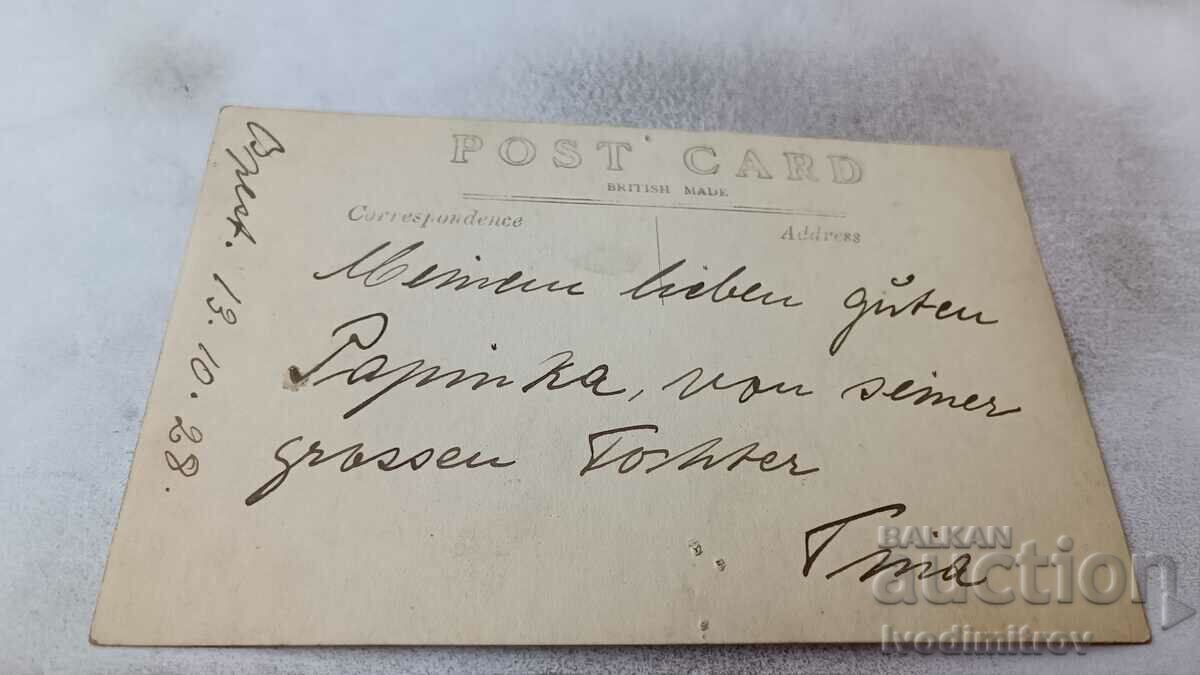 POST CARD
BRITISH MADE
Correspondence
Address
Meinem lieben guten
Papinka, von seiner
grossen Tochter
13.10.28.
BALKAN
auction
Ivodimitrov